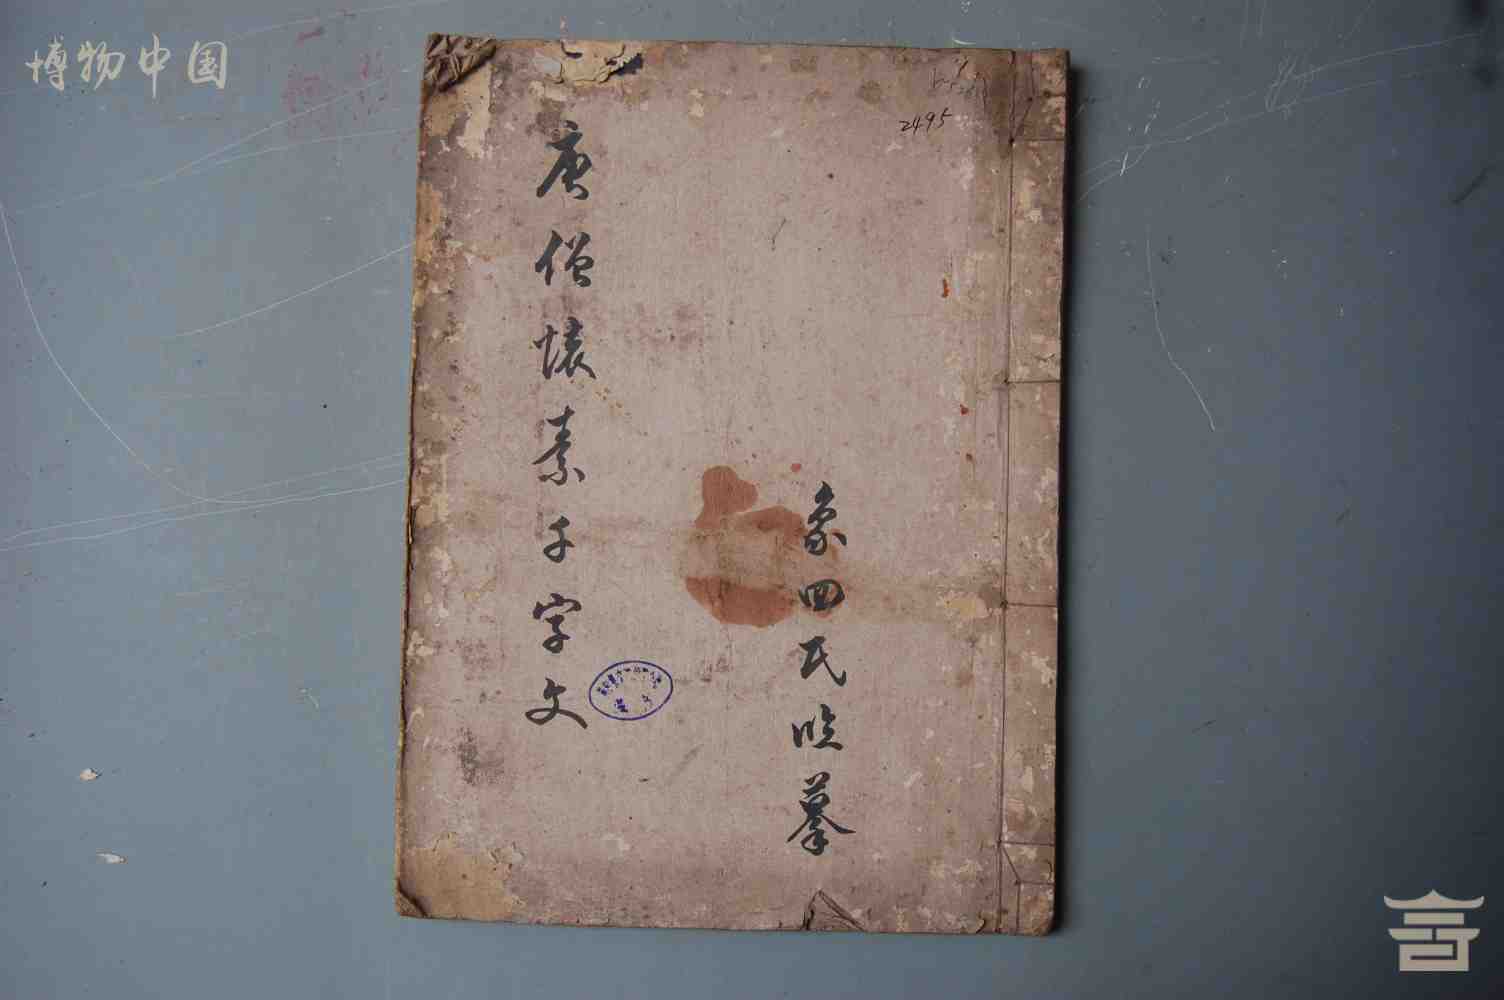 博物中国
2495
象四氏临摹
唐僧懐素千字文